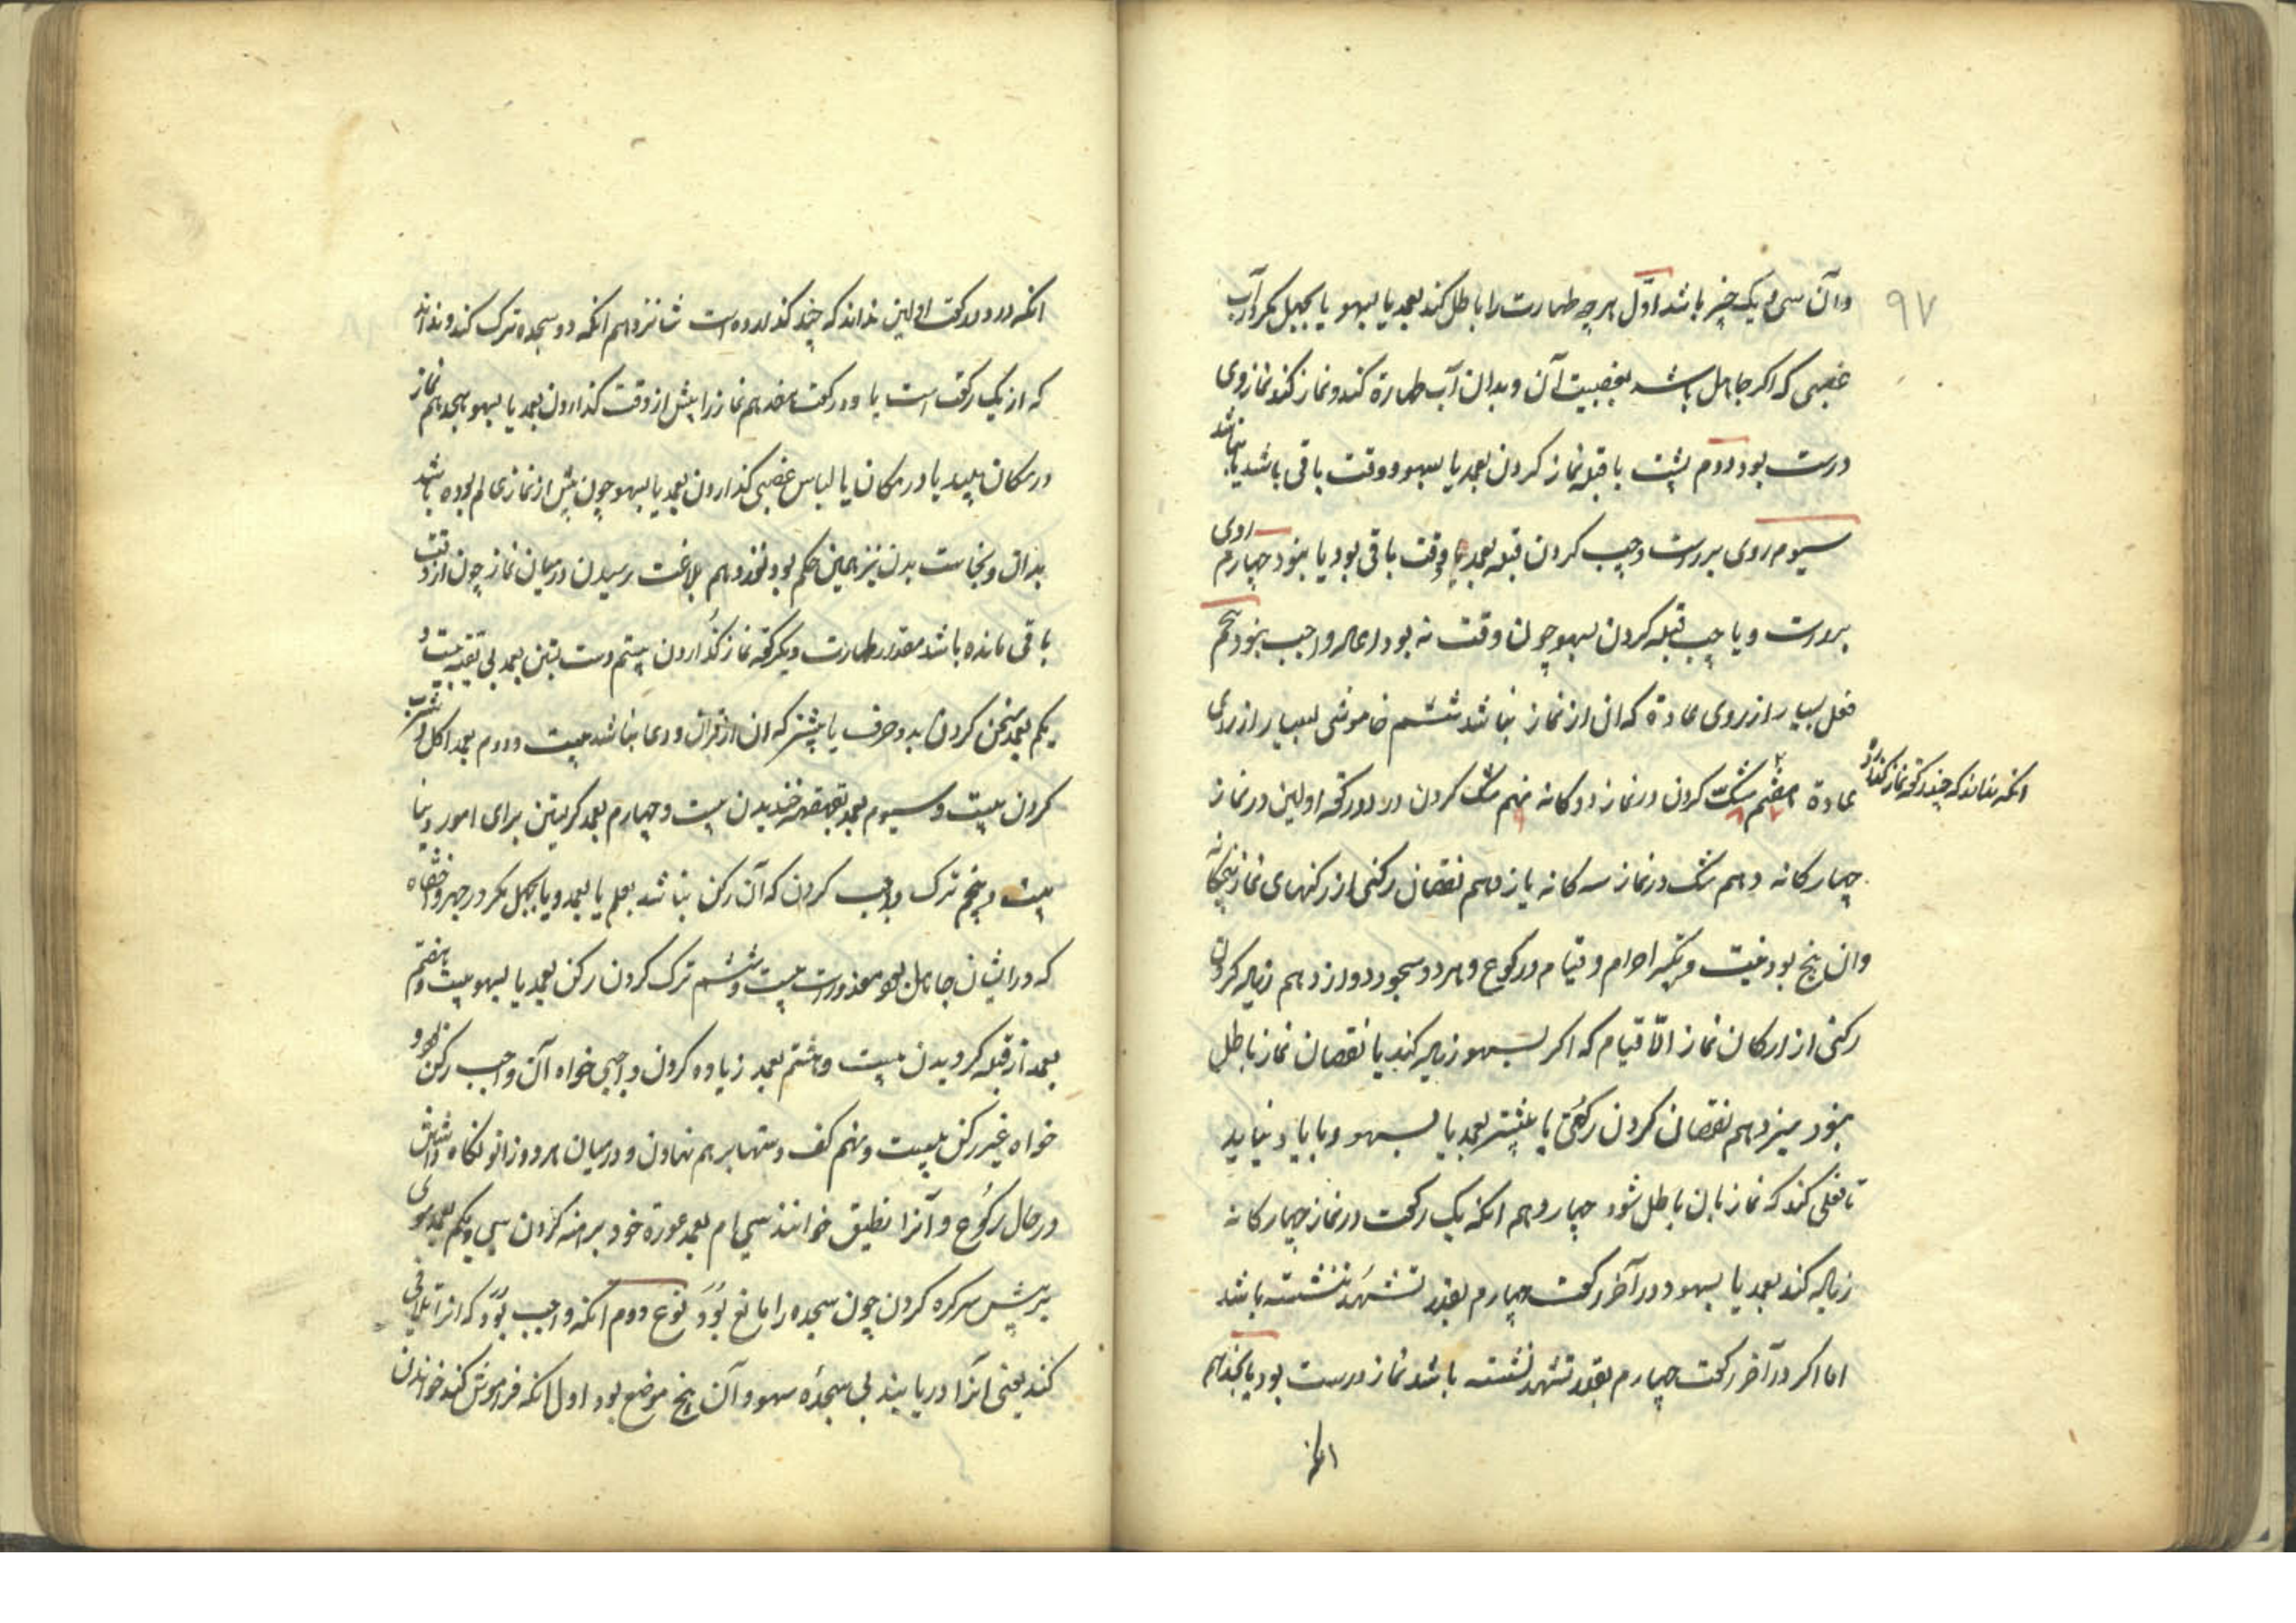 ۹۷
وآن سی و یک چیز باشد اوّل هرچه طهارت را باطل کند بعمد یا بسهو یا بجهل مکر آب
غصبی که اکر جاهل باشد بغصبیت آن وبدان آب طهارة کند ونماز کند نماز وی
درست بود دوم پشت باقبله نماز کردن بعمد یا بسهو ووقت باقی باشد یا نباشد
سیوم روی براست وچپ کردن قبله بعمد وقت باقی بود یا نبود چهارم روی
براست ویا چپ قبله کردن بسهو چون وقت نه بود اعاله واجب نبود پنجم
فعل بسیار از روی عادة که ان از نماز نباشد ششم خاموشی بسیار از روی
عادة هفتم شکّ کردن درنماز دوکانه نهم شک کردن در دورکعة اولین درنماز
انکه نداند که چند رکعة نماز کذارد
چهارکانه دهم شک درنماز سه کانه یازدهم نقصان رکنی از رکنهای نماز پنجکانه
وان پنج بود نیت وتکبیر احرام وقیام ورکوع وهردو سجود دوازدهم زیاله کردن
رکنی از ارکان نماز الّا قیام که اکر بسهو زیاله کند یا نقصان نماز باطل
نبود سیزدهم نقصان کردن رکعتی یا بیشتر بعمد یا بسهو وبا یاد نیاید
تا فعلی کند که نماز بان باطل شود چهاردهم انکه یک رکعت درنماز چهارکانه
زیاله کند بعمد یا بسهو ودر آخر رکعت چهارم بقدر تشهّد ننشسته باشد
اما اکر در آخر رکعت چهارم بقدر تشهد نشسته باشد نماز درست بود پانجدهم
انکه
انکه در دو رکعت اولین نداند که چند کذارده است شانزدهم انکه دو سجده ترک کند ونداند
که از یک رکعت است یا دو رکعت هفدهم نماز را پیش از وقت کذاردن بعمد یا بسهو هجدهم نماز
در مکان پلید یا در مکان یا لباس غصبی کذاردن بعمد یا بسهو چون پیش از نماز عالم بوده باشد
بدان ونجاست بدن نیز همین حکم بود نوزدهم بلاغت رسیدن درمیان نماز چون از وقت
باقی مانده باشد مقدور طهارت ویکرکعة نماز کذُاردن بیستم دست بستن بعمد بی تقیه بیست و
یکم بعمد سخن کردن بدو حرف یا بیشتر که ان از قران ودعا نباشد بیست ودوم بعمد اکل وشرب
کردن بیست وسیوم بعمد بقهقهه خندیدن بیست وچهارم بعمد کریستن برای امور دنیا
بیست وپنجم ترک واجب کردن که آن رکن نباشد بعلم یا بعمد ویا بجهل مکر در جهر واخفاه
که درایشان جاهل معذورست بیست وششم ترک کردن رکن بعمد یا بسهو بیست وهفتم
بعمد از قبله کردیدن بیست وهشتم بعمد زیاده کردن واجبی خواه آن واجب رکن بود و
خواه غیر رکن بیست ونهم کف دستها برهم نهادن ودرمیان هردو زانو نکاه داشتن
درحال رکُوع وآنرا تطبیق خوانند سی ام بعمد عورة خود برهنه کردن سی ویکم بعمد موی
سر پیش سر کره کردن چون سجده را مانع بوَُد نوع دوم انکه واجب بوَُد که انرا تلافی
کند یعنی انرا دریابند بی سجدهٔ سهو وآن پنج موضع بود اول انکه فراموش کند خواندن